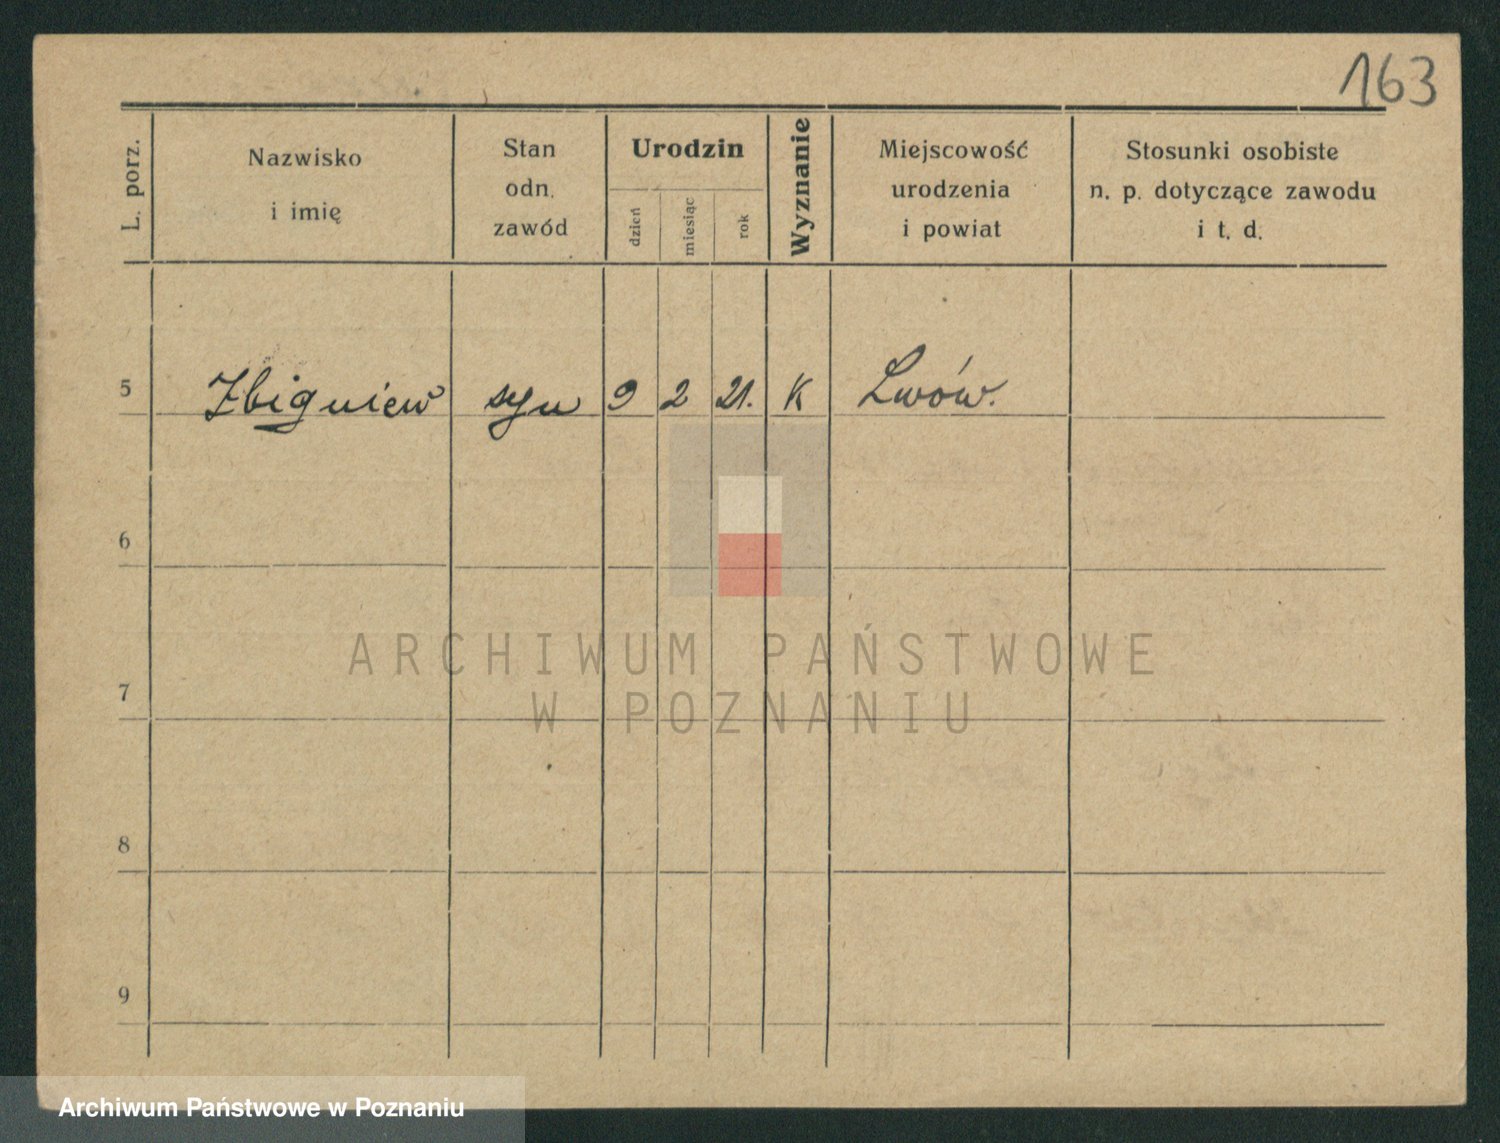 163
L. porz.
Nazwisko
i imię
Stan
odn.
zawód
Urodzin
dzień
miesiąc
rok
Wyznanie
Miejscowość
urodzenia
i powiat
Stosunki osobiste
n. p. dotyczące zawodu
i t. d.
5 Zbigniew syn 9 2 21. K Lwów.
6
7
8
9
ARCHIWUM PAŃSTWOWE
W POZNANIU
Archiwum Państwowe w Poznaniu